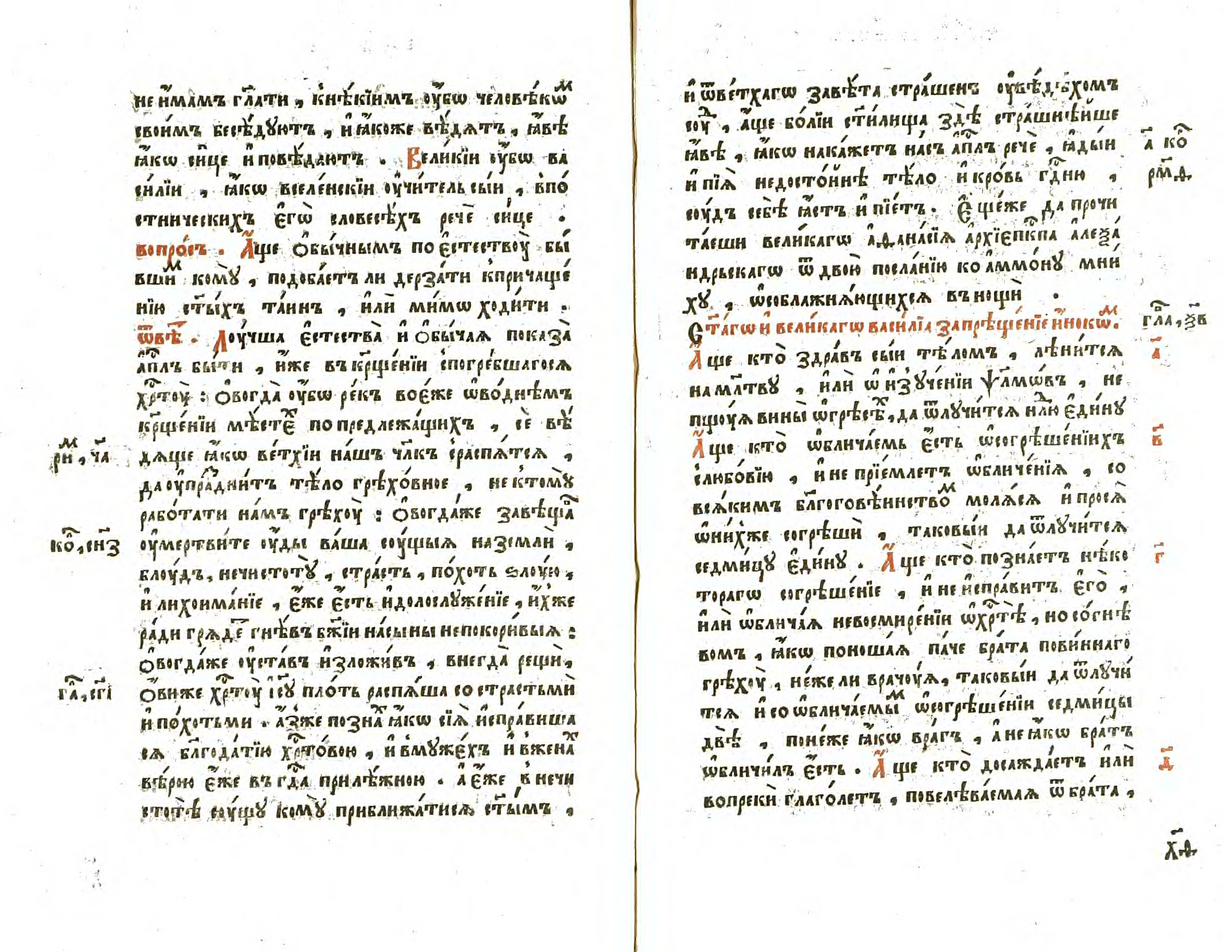 не и҆́мамъ гл҃ати , кнѣ́кїимъ оу҆́бѡ человѣ́кѡⷨ
своимъ бесѣ́дуютъ , и҆ ꙗ҆́коже вѣ́дятъ , ꙗ҆́вѣ
ꙗ҆́кѡ си́це и҆ повѣ́даютъ . Вели́кїи оу҆́бѡ ва
си́лїи , ꙗ҆́кѡ вселе́нскїи оу҆чи́тель сы́и , впо
стническихъ є҆гѡ̀ словесѣ́хъ речѐ си́це .
вопро́съ . А҆́ще ѻ҆бы́чнымъ по є҆стествоу̀ бы́
вшиⷨ комꙋ̀ , подоба́етъ ли дерза́ти кпричаще́
нїю ст҃ы́хъ та́инъ , и҆лѝ ми́мѡ ходи́ти .
ѿвѣ́ . Лоу́чша є҆стества̀ и҆ ѻ҆бы́чая показа̀
а҆пⷭ҇лъ бы́ти , и҆́же въ кр҃ще́нїи спогре́бшагося
хрⷭ҇тоу̀ : ѻ҆вогда̀ оу҆́бѡ ре́къ вое́же ѡ҆во́днѣмъ
кр҃ще́нїи мѣ́стѣ попредлежа́щихъ , сѐ вѣ́
дяще ꙗ҆́кѡ ве́тхїи на́шъ чл҃къ сраспя́тся ,
да оу҆праздни́тъ тѣ́ло грѣхо́вное , не ктомꙋ̀
рабо́тати на́мъ грѣхоу̀ : ѻ҆вогда́же завѣща̀
оу҆мертви́те оу҆́ды ва́ша соу́щыя на землѝ ,
блоу́дъ, нечистотꙋ̀ , стра́сть , по́хоть ѕлоу́ю,
и҆ лихоима́нїе , є҆́же є҆́сть и҆долослуже́нїе , и҆́хже
ра́ди гряде́ гнѣ́въ бж҃їи на сы́ны непокори́выя :
ѻ҆вогда́же оу҆ста́въ и҆зложи́въ , внегда̀ рещѝ,
ѻ҆ви́же хрⷭ҇тоу̀ і҆с҃у пло́ть распя́ша со страстьмѝ
и҆ по́хотьми . а҆́зже позна̀ ꙗ҆́кѡ сїя̀ и҆спра́виша
ся благода́тїю хрⷭ҇то́вою , и҆ вмуже́хъ и҆ вжена́хъ
вѣ́рою є҆́же въ гдⷭ҇а прилѣ́жною . а҆ є҆́же в нечи
стотѣ̀ соу́щу комꙋ̀ приближа́тися ст҃ы́мъ ,
риⷨ , ча҃
ко҃ , си҃з
га҃ , сг҃і
и҆ ѿве́тхагѡ завѣ́та стра́шенъ оу҆вѣ́дѣхомъ
соу́дъ , а҆́ще бо́лїи ст҃и́лища здѣ̀ страшнѣ́ише
ꙗ҆́вѣ , ꙗ҆́кѡ нака́жетъ на́съ а҆пⷭ҇лъ речѐ , ꙗ҆ды́и
и҆ пїя̀ недосто́инѣ тѣ́ло и҆ кро́вь гдⷭ҇ню ,
соу́дъ себѣ̀ ꙗ҆́стъ и҆ пїе́тъ . Є҆ще́же да прочи
та́еши вели́кагѡ а҆ѳана́сїя а҆рхїепⷭ҇кпа а҆леѯа́
ндрьскагѡ ѿ двою̀ посла́нїю ко а҆ммо́ну мни́
хꙋ , ѡ҆соблажня́ющихся въ нощѝ .
Ст҃а́гѡ и҆ вели́кагѡ васи́лїа запрѣще́нїе и҆́нокѡⷨ.
А҆́ще кто̀ здра́въ сы́и тѣ́ломъ , лѣни́тся
на мл҃тву , и҆лѝ ѡ҆ и҆зꙋче́нїи ѱалмѡ́въ , не
пщоуя вины̀ ѡ҆ грѣсѣ́хъ, да ѿлучи́тся нлⷣю є҆ди́ну
А҆́ще кто̀ ѡ҆блича́емь є҆́сть ѡ҆согрѣше́нїихъ
слюбо́вїю , и҆ не прїе́млетъ ѡ҆бличе́нїя , со
вся́кимъ бл҃гоговѣ́инствоⷨ моля́ся и҆ прося̀
ѡ҆ни́хже согрѣшѝ , таковы́и да ѿлучи́тся
седми́цу є҆ди́ну . А҆́ще кто̀ позна́етъ нѣ́ко
торагѡ согрѣше́нїе , и҆ не и҆спра́витъ є҆го̀ ,
и҆лѝ ѡ҆блича́я невосмире́нїи ѡ҆хрⷭ҇тѣ̀ , но со́гнѣ
вомъ , ꙗ҆́кѡ поноша́я па́че бра́та пови́ннаго
грѣхоу̀ , не́же ли врачоу́я, таковы́и да ѿлучи́
тся и҆ со ѡ҆блича́емыⷨ ѡ҆согрѣше́нїи седми́цы
двѣ̀ , поне́же ꙗ҆́кѡ вра́гъ , а҆ не ꙗ҆́кѡ бра́тъ
ѡ҆бличи́лъ є҆́сть . А҆́ще кто̀ досажда́етъ и҆лѝ
вопрекѝ глаго́летъ , повелѣва́емая ѿ бра́та ,
а҃ ко҃
рм҃ѳ
гла҃ , ѯв҃
а҃
в҃
г҃
д҃
х҃ѳ